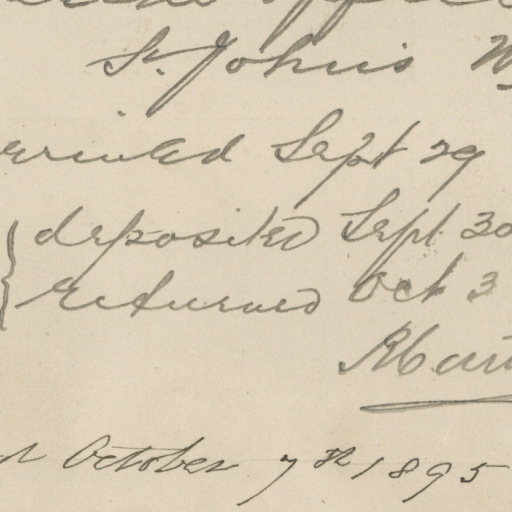 St. John's
Sept 29
deposited Sept 30
returned Oct 3
October 7th 1895